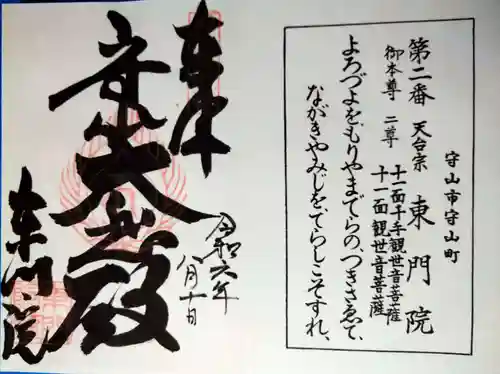 守山市守山町
第二番 天台宗 東門院
御本尊 二尊 十一面千手観世音菩薩
十一面観世音菩薩
よろづよをもりやまでらの、つきさゑて、
ながきやみじをてらしこそすれ、
奉拝
大悲殿
令和六年
八月十日
東門院